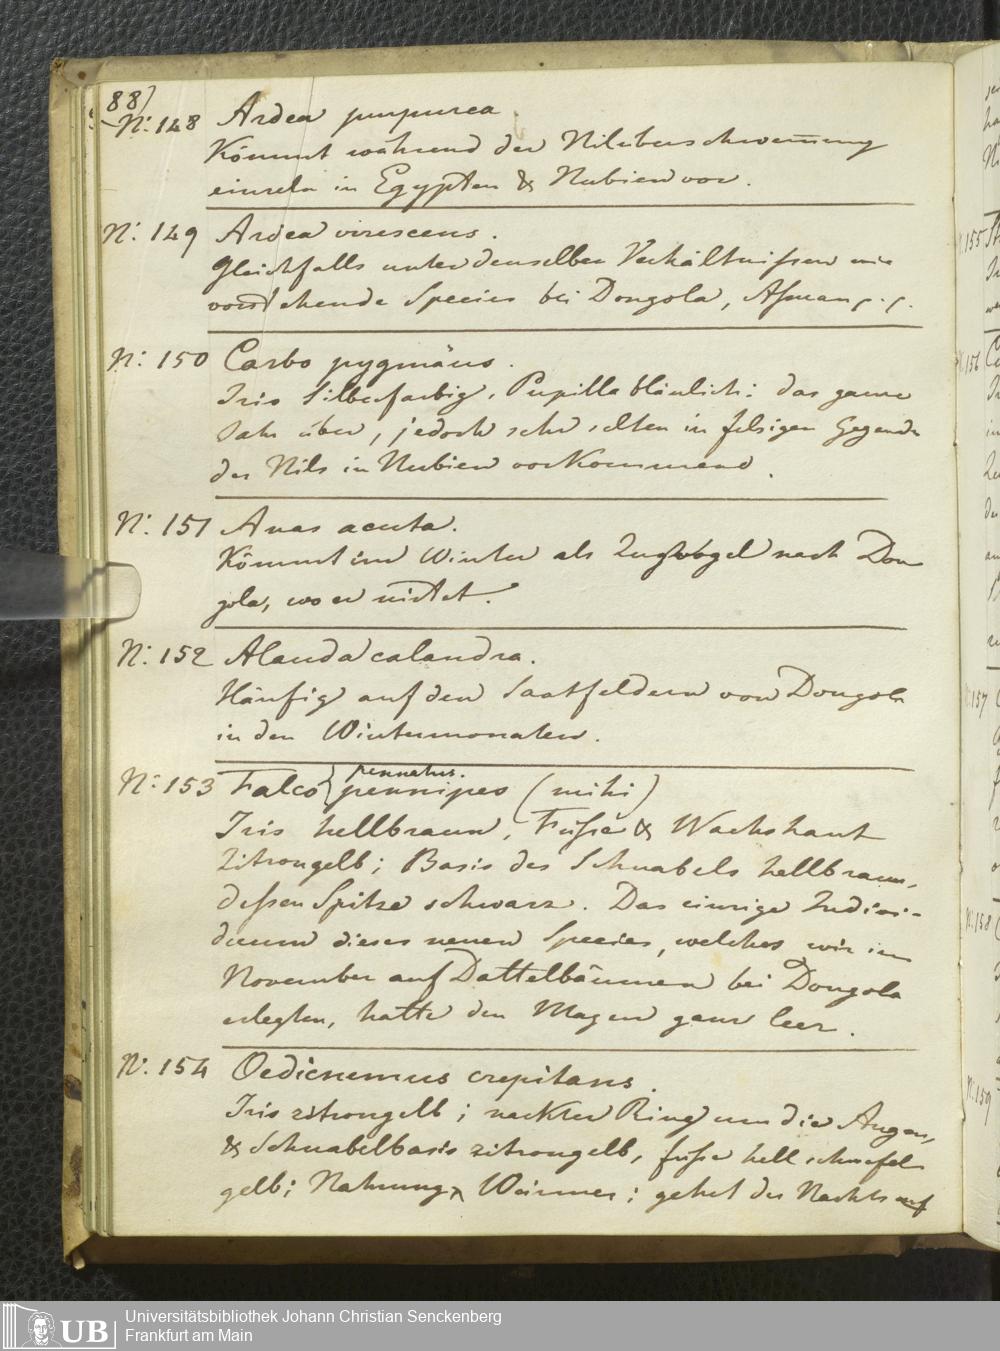 88)
N: 148 Ardea purpurea
Kömmt während der Nilüberschwem̅ung
einzeln in Egypten & Nubien vor.
N: 149 Ardea virescens.
Gleichfalls unter denselben Verhältnißen wie
vorstehende Species bei Dongola, Aßuan p. p.
N: 150 Carbo pygmäus.
Iris Silberfarbig, Pupilla bläulich: das ganze
Jahr über, jedoch sehr selten in felsigen Gegenden
des Nils in Nubien vorkommend.
N: 151 Anas acuta.
Kömmt im Winter als Zugvögel nach Don
gola, wo er nistet.
N: 152 Alauda calandra.
Häufig auf den Saatfeldern von Dongola
in den Wintermonaten.
pennatus.
N: 153 Falco pennipes (mihi)
Iris hellbraun, Füße & Wachshaut
Zitrongelb; Basis des Schnabels hellbraun,
deßen Spitze schwarz. Das einzige Indivi-
duum dieses neuen Species, welches wir im
November auf Dattelbäumen bei Dongola
erlegten, hatte den Magen ganz leer.
N: 154 Oedicnemus crepitans.
Iris zitrongelb; nackter Ring um die Augen,
& Schnabelbasis zitrongelb, füße hell schwefel
gelb; Nahrung, Würmer; gehet des Nachts auf
N: 155
N: 156
N: 157
N: 158
N: 159
Universitätsbibliothek Johann Christian Senckenberg
Frankfurt am Main
UB